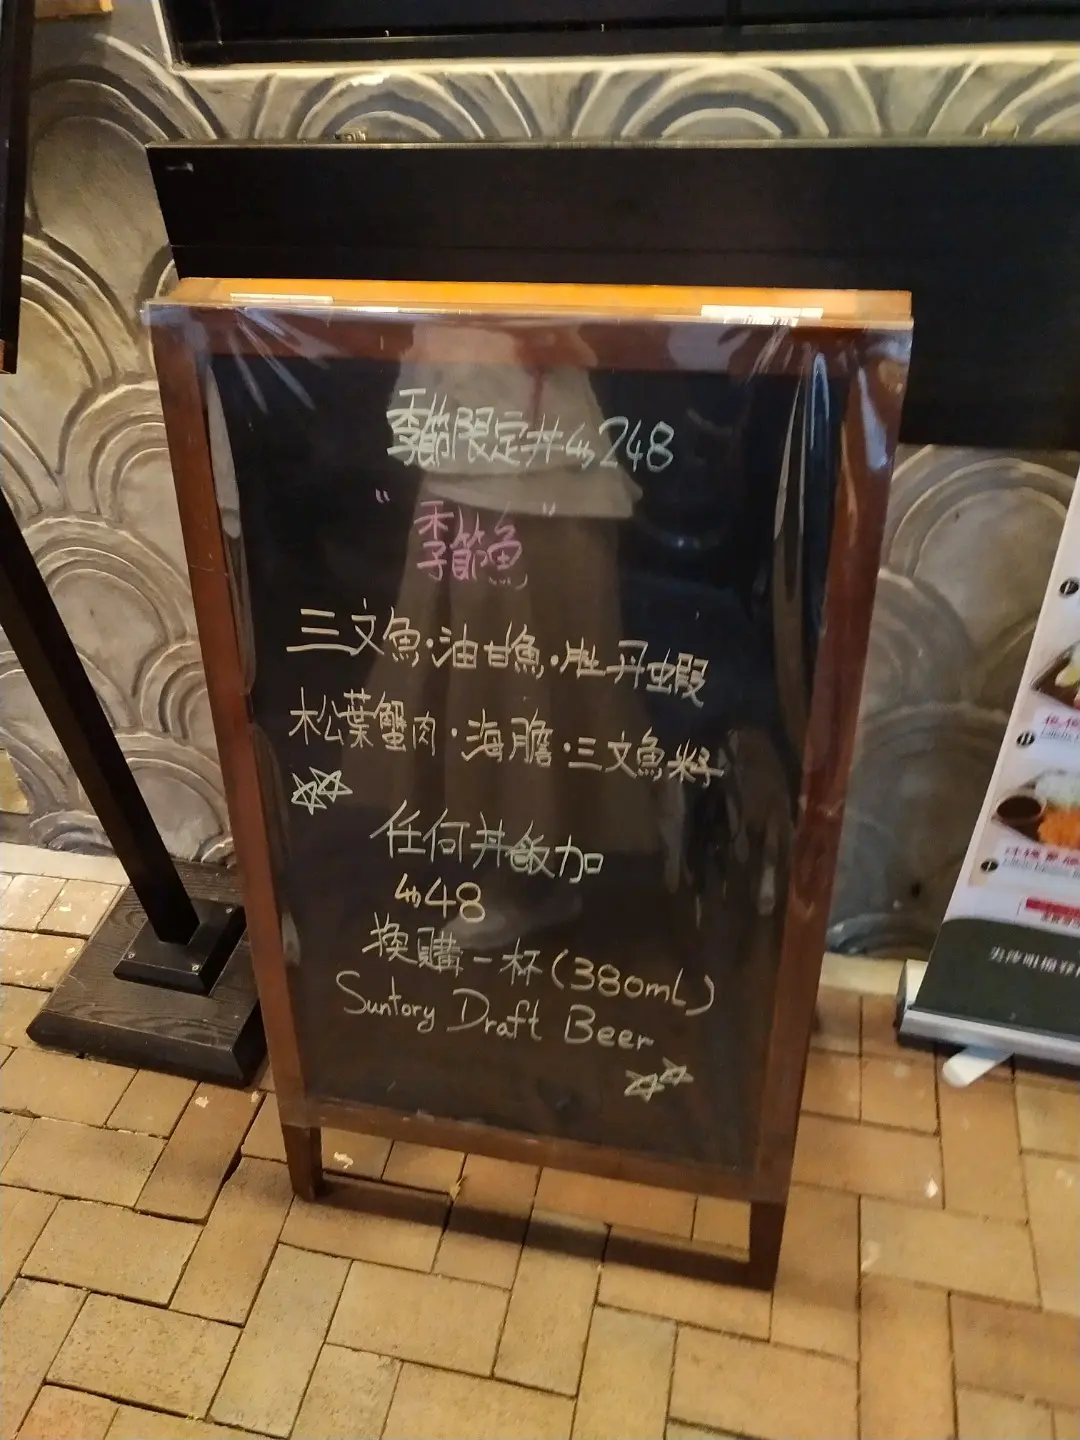 季節限定丼$248
"季節魚"
三文魚·油甘魚·牡丹蝦
松葉蟹肉·海膽·三文魚籽
任何丼飯加
$48
換購一杯(380mL)
Suntory Draft Beer